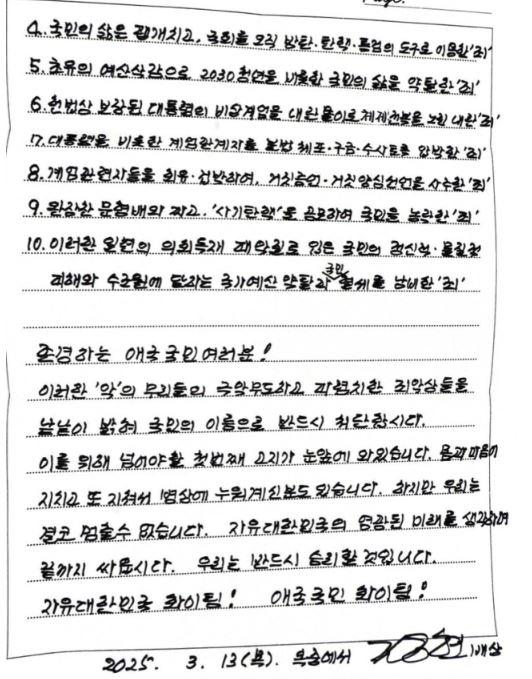 Page.
4. 국민의 삶은 팽개치고, 국회를 오직 방탄·탄핵·특검의 도구로 이용한 '죄'
5. 초유의 예산삭감으로 2030 청년을 비롯한 국민의 삶을 약탈한 '죄'
6. 헌법상 보장된 대통령의 비상계엄을 내란몰이로 체제전복을 노린 내란 '죄'
7. 대통령을 비롯한 계엄관계자를 불법 체포·구금·수사토록 압박한 '죄'
8. 계엄관련자들을 회유·겁박하여, 거짓증언·거짓양심선언을 사수한 '죄'
9. 완장찬 문형배와 짜고, '사기탄핵'을 공모하여 국민을 농락한 '죄'
10. 이러한 일련의 의회독재 패악질로 입은 국민의 정신적·물질적
피해와 수조원에 달하는 국가예산 약탈과 국민혈세를 낭비한 '죄'
존경하는 애국국민여러분!
이러한 '악'의 무리들의 극악무도하고 파렴치한 죄악상들을
낱낱이 밝혀 국민의 이름으로 반드시 처단합시다.
이를 위해 넘어야할 첫번째 고지가 눈앞에 와있습니다. 몸과 마음이
지치고 또 지쳐서 병상에 누워계신분도 있습니다. 하지만 우리는
결코 멈출수 없습니다. 자유대한민국의 영광된 미래를 생각하며
끝까지 싸웁시다. 우리는 반드시 승리할 것입니다.
자유대한민국 화이팅! 애국국민 화이팅!
2025. 3. 13(목). 옥중에서 김용현 배상